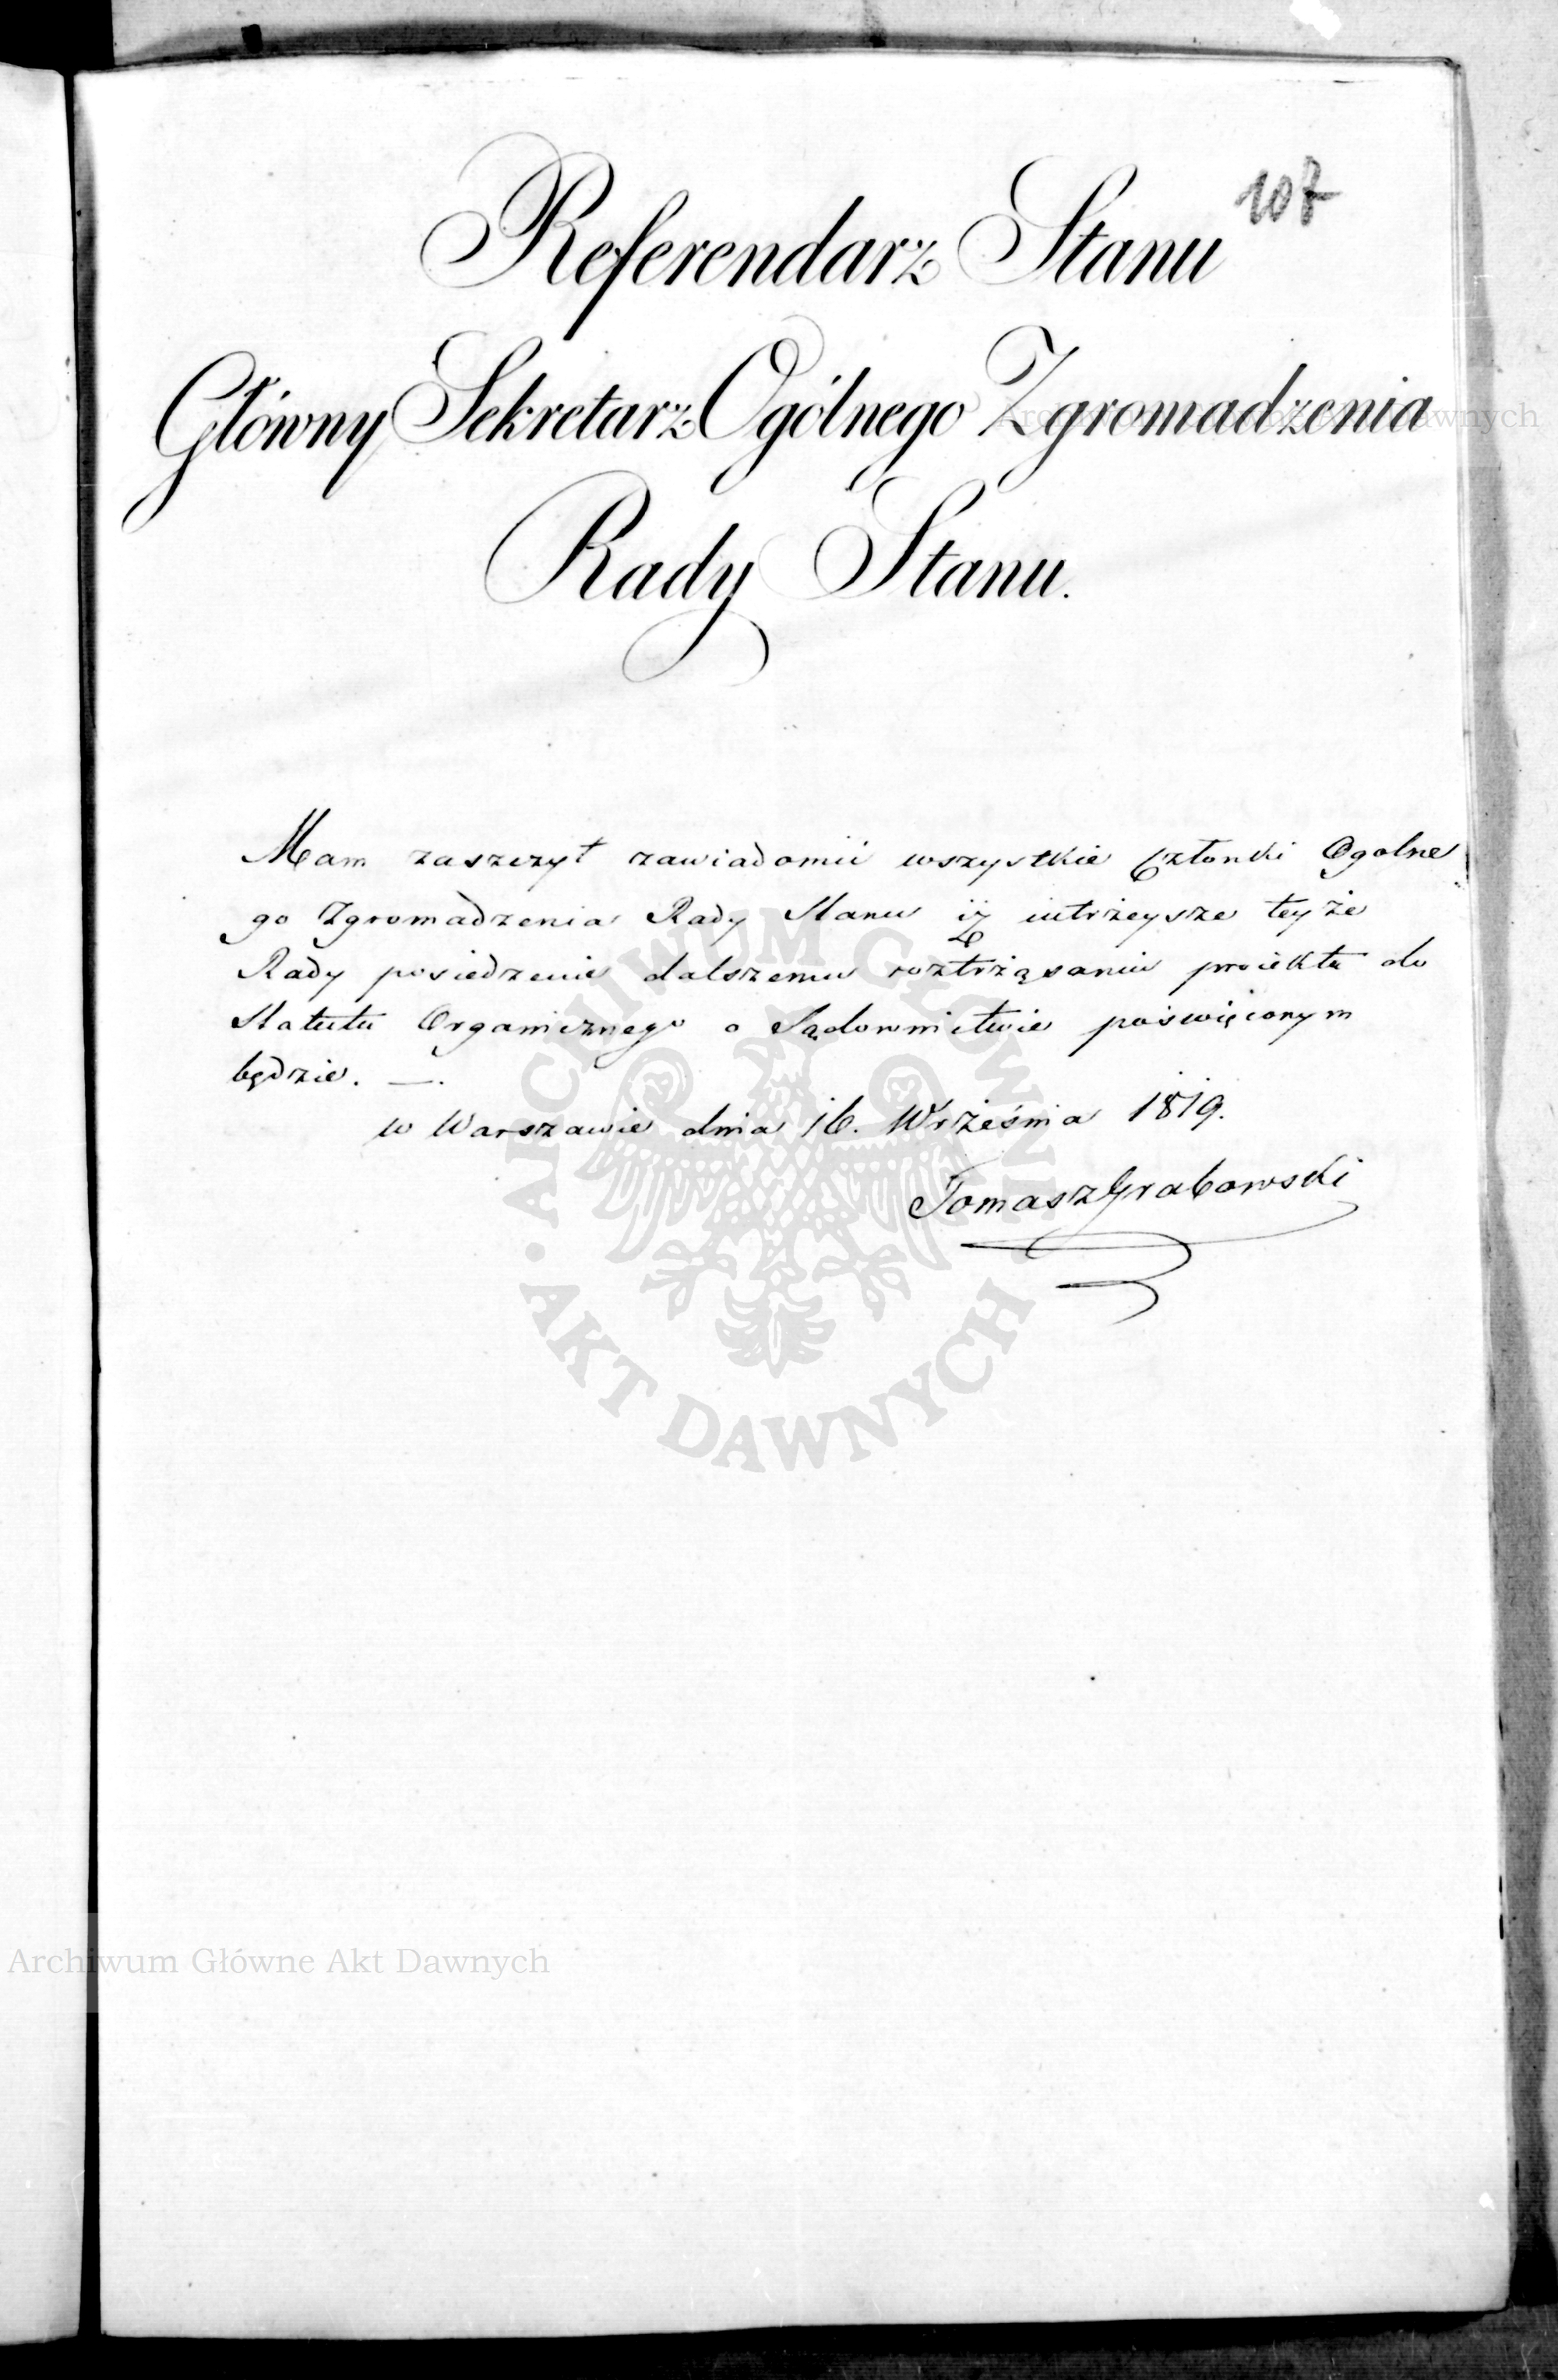 107
Referendarz Stanu
Główny Sekretarz Ogólnego Zgromadzenia
Rady Stanu.
Mam zaszczyt zawiadomić wszystkie Członki Ogolne
go Zgromadzenia Rady Stanu iż iutrzeysze teyże
Rady posiedzenie dalszemu roztrżąsaniu proiektu do
Statutu Organicznego o Sądownictwie poświęconym
będzie. —.
w Warszawie dnia 16. Wrżeśnia 1819.
Tomasz Grabowski
ARCHIWUM GŁÓWNE · AKT DAWNYCH ·
Archiwum Główne Akt Dawnych
Archiwum Główne Akt Dawnych